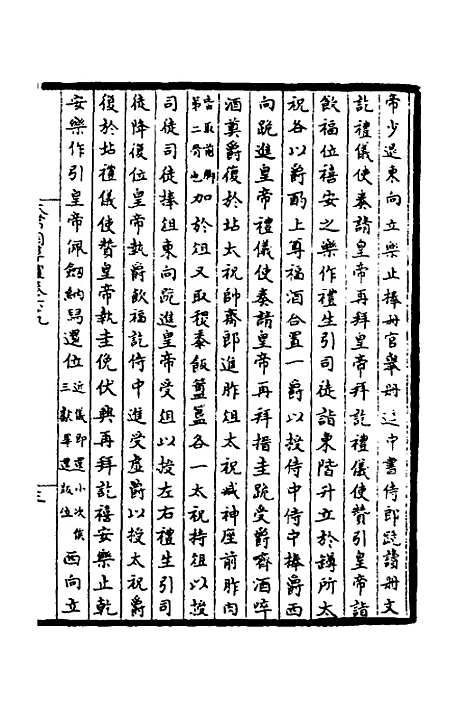 帝少退東向立樂止捧冊官舉冊進中書侍郎跪讀冊文
訖禮儀使奏請皇帝再拜皇帝拜訖禮儀使贊引皇帝詣
飲福位禧安之樂作禮生引司徒詣東階升立於罇所太
祝各以爵酌上尊福酒合置一爵以授侍中侍中捧爵西
向跪進皇帝禮儀使奏請皇帝再拜搢圭跪受爵齊酒啐
酒奠爵復於坫太祝帥齋郎進胙俎太祝減神座前胙肉
皆取前脚第二骨也加於俎又取稷黍飯簠簋各一太祝持俎以授
司徒司徒捧俎東向跪進皇帝受俎以授左右禮生引司
徒降復位皇帝執爵飲福訖侍中進受虛爵以授太祝爵
復於坫禮儀使贊皇帝執圭俛伏興再拜訖禧安樂止乾
安樂作引皇帝佩劍納舄還位近儀即還小次俟三獻畢還版位西向立